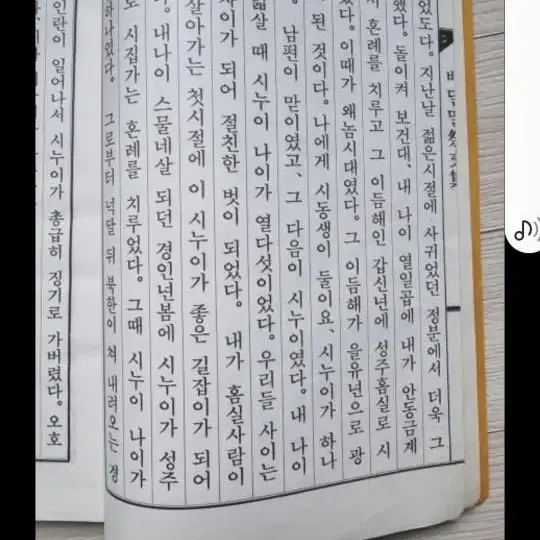 었도다. 지난날 젊은시절에 사귀었던 정분에서 더욱 그
했다. 돌이켜 보건대, 내 나이 열일곱에 내가 안동금계
서 혼례를 치루고 그 이듬해인 갑신년에 성주홈실로 시
었다. 이때가 왜놈시대였다. 그 이듬해가 을유년으로 광
된 것이다. 나에게 시동생이 둘이요, 시누이가 하나
남편이 맏이였고, 그 다음이 시누이였다. 내 나이
덟살 때 시누이 나이가 열다섯이었다. 우리들 사이는
사이가 되어 절친한 벗이 되었다. 내가 홈실사람이
살아가는 첫시절에 이 시누이가 좋은 길잡이가 되어
. 내나이 스물네살 되던 경인년봄에 시누이가 성주
로 시집가는 혼례를 치루었다. 그때 시누이 나이가
하나였다. 그로부터 넉달 뒤 북한이 쳐 내려오는 경
인란이 일어나서 시누이가 총급히 징기로 가버렸다. 오호